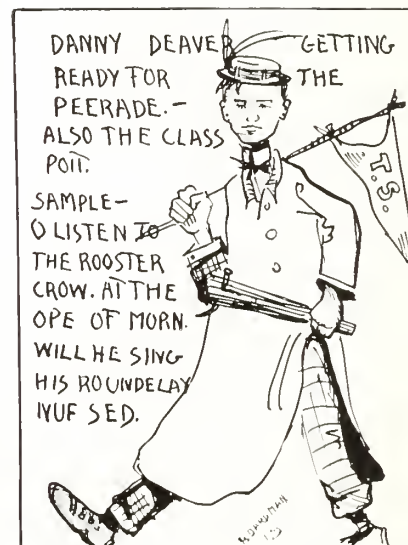 DANNY DEAVER GETTING
READY FOR THE
PEERADE.-
ALSO THE CLASS
POIT.
SAMPLE-
O LISTEN TO
THE ROOSTER
CROW. AT THE
OPE OF MORN.
WILL HE SING
HIS ROUNDELAY
NUF SED.
T.S.